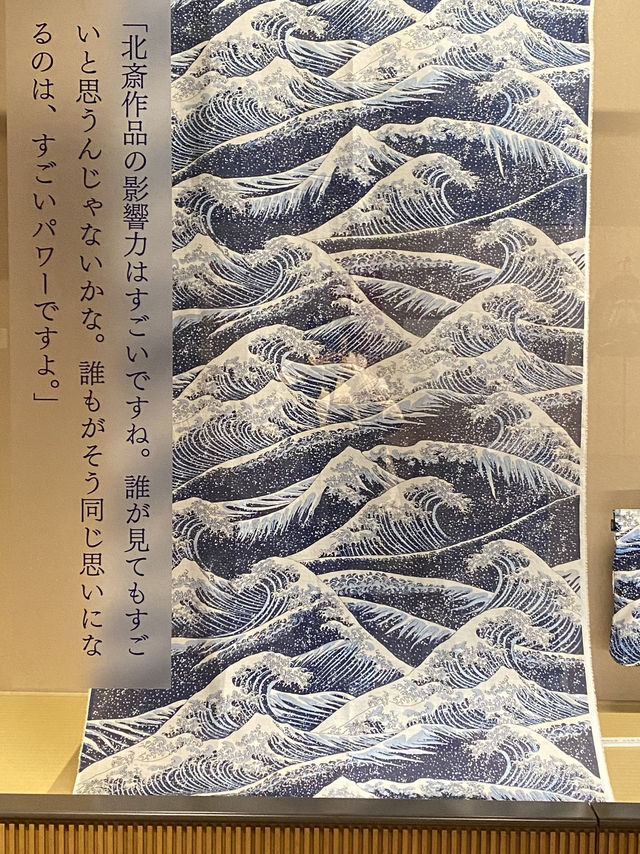 「北斎作品の影響力はすごいですね。誰が見てもすご
いと思うんじゃないかな。誰もがそう同じ思いにな
るのは、すごいパワーですよ。」